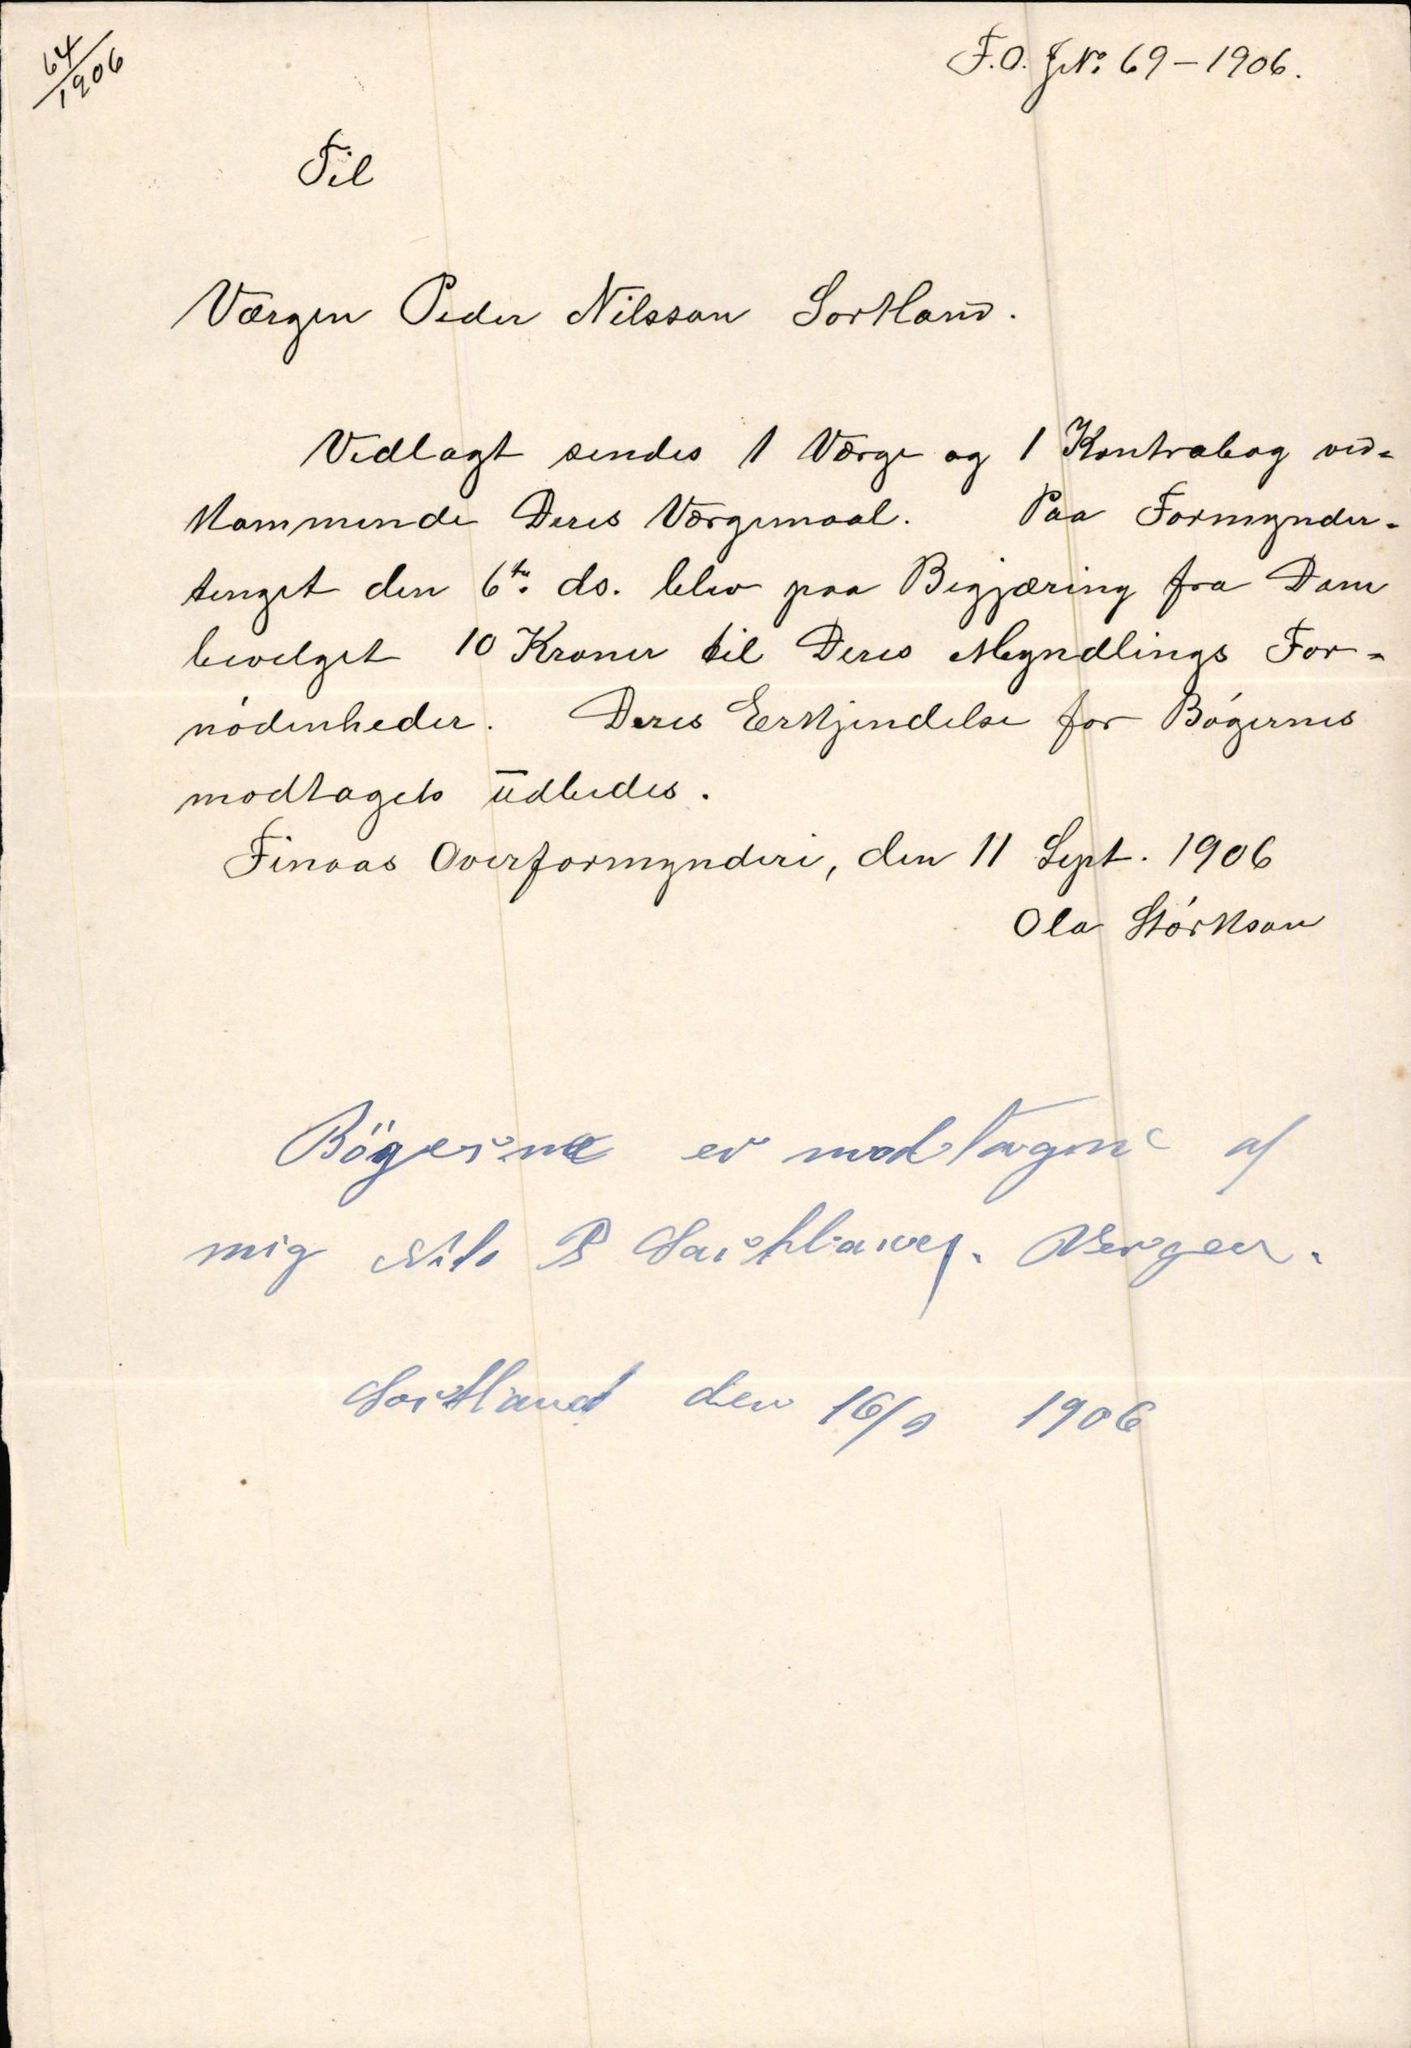 64/1906
F.O. JNo. 69 – 1906.
Til
Værgen Peder Nilsson Sortland.
Vedlagt sendes 1 Værge og 1 Kontrabog ved-
kommende Deres Værgemaal. Paa Formynder-
tinget den 6te ds. blev paa Begjæring fra Dem
bevilget 10 Kroner til Deres Myndlings For-
nødenheder. Deres Erkjendelse for Bøgernes
modtagels udbedes.
Finaas Overformynderi, den 11 Sept. 1906
Ola Størkson
Bögerne er modtagne af
mig Nils P Sortland. Vergen.
Sortland den 16/9 1906